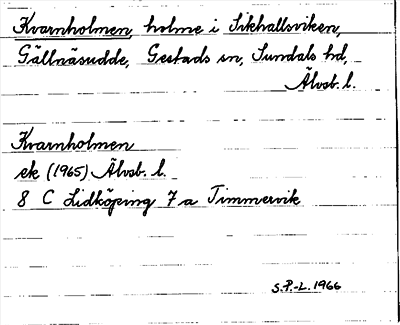 Kvarnholmen, holme i Sikhallsviken,
Gällnäsudde, Gestads sn, Sundals hd,
Älvsb. l.
Kvarnholmen
ek (1965) Älvsb. l.
8 C Lidköping 7 a Timmervik
S.P.-L. 1966